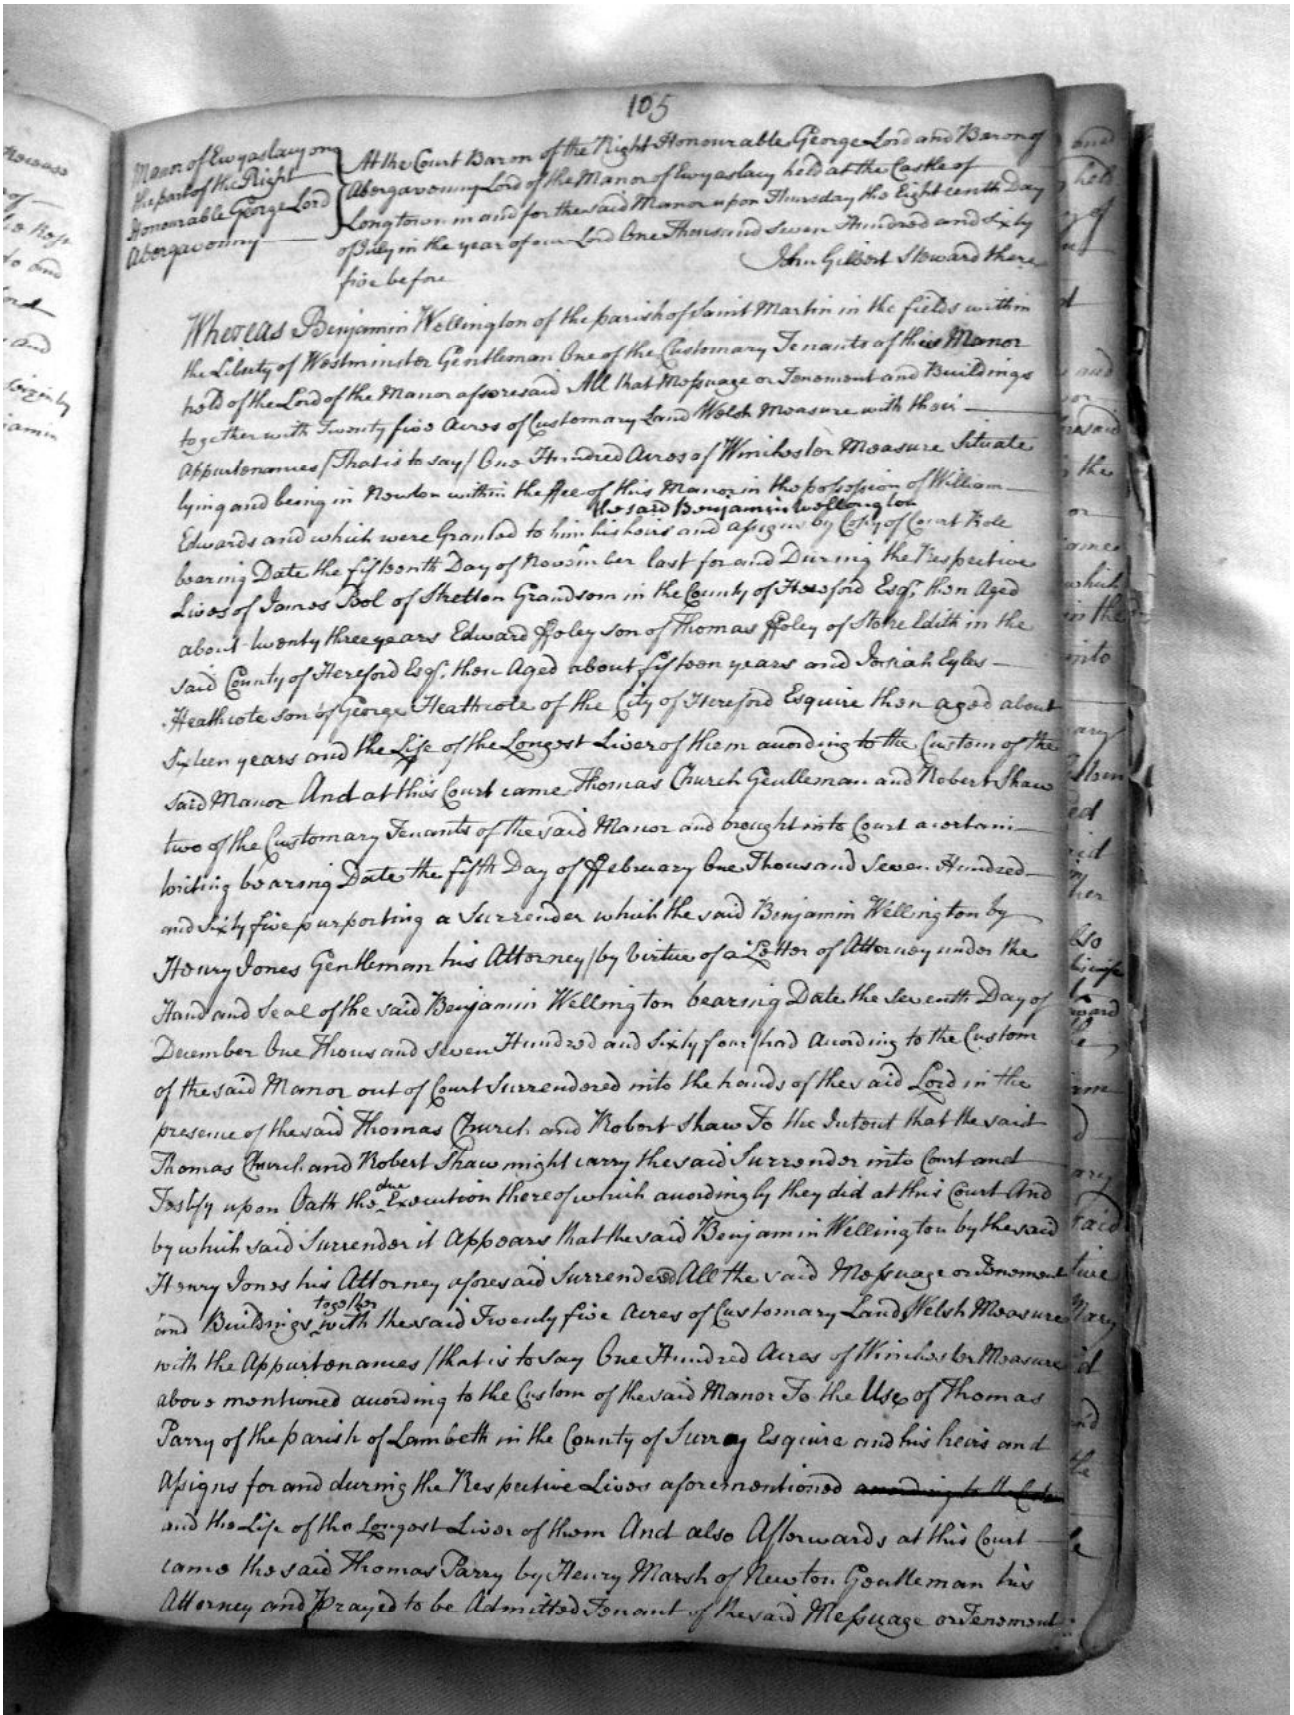 105
Manor of Ewyaslacy on
the part of the Right
Honourable George Lord
Abergavenny
At the Court Baron of the Right Honourable George Lord and Baron of
Abergavenny Lord of the Manor of Ewyaslacy held at the Castle of
Longtown in and for the said Manor upon Thursday the Eighteenth Day
of July in the year of our Lord One Thousand Seven Hundred and Sixty
five before John Gilbert Steward there
Whereas Benjamin Wellington of the parish of Saint Martin in the fields within
the Liberty of Westminster Gentleman One of the Customary Tenants of this Manor
held of the Lord of the Manor aforesaid All that Messuage or Tenement and Buildings
together with Twenty five Acres of Customary Land Welsh Measure with their
Appurtenances / That is to say / One Hundred Acres of Winchester Measure Situate
lying and being in Newton within the ffee of this Manor in the possession of William
the said Benjamin Wellington
Edwards and which were Granted to him his heirs and assigns by Copy of Court Role
bearing Date the fifteenth Day of November last for and During the Respective
Lives of James Bol of Stretton Grandsom in the County of Hereford Esqr. then Aged
about twenty three years Edward ffoley son of Thomas ffoley of Stoke Edith in the
said County of Hereford Esqr. then Aged about fifteen years and Josiah Eyles
Heathcote son of George Heathcote of the City of Hereford Esquire then aged about
Sixteen years and the Life of the Longest Liver of them according to the Custom of the
said Manor And at this Court came Thomas Church Gentleman and Robert Shaw
two of the Customary Tenants of the said Manor and brought into Court a certain
writing bearing Date the fifth Day of ffebruary One Thousand Seven Hundred
and Sixty five purporting a Surrender which the said Benjamin Wellington by
Henry Jones Gentleman his Attorney / by virtue of a Letter of Attorney under the
Hand and Seal of the said Benjamin Wellington bearing Date the Seventh Day of
December One Thousand Seven Hundred and Sixty four / had according to the Custom
of the said Manor out of Court Surrendered into the hands of the said Lord in the
presence of the said Thomas Church and Robert Shaw To the Intent that the said
Thomas Church and Robert Shaw might carry the said Surrender into Court and
Testify upon Oath the due Execution thereof which accordingly they did at this Court And
by which said Surrender it Appears that the said Benjamin Wellington by the said
Henry Jones his Attorney aforesaid Surrendered All the said Messuage or Tenement
and Buildings together with the said Twenty five Acres of Customary Land Welsh Measure
with the Appurtenances / that is to say One Hundred Acres of Winchester Measure
above mentioned according to the Custom of the said Manor To the Use of Thomas
Parry of the parish of Lambeth in the County of Surray Esquire and his heirs and
Assigns for and during the Respective Lives aforementioned according to the Custom
and the Life of the Longest Liver of them And also Afterwards at this Court
came the said Thomas Parry by Henry Marsh of Newton Gentleman his
Attorney and Prayed to be Admitted Tenant of the said Messuage or Tenement